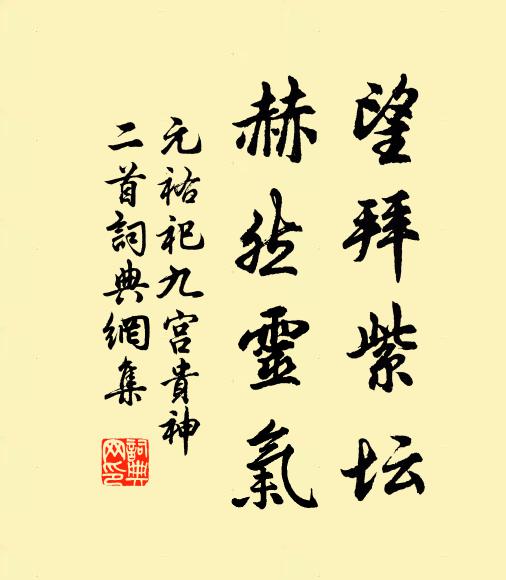 望拜紫坛
赫然靈氣
元祐祀九宫貴神
二首詞典網集
詞典
网印